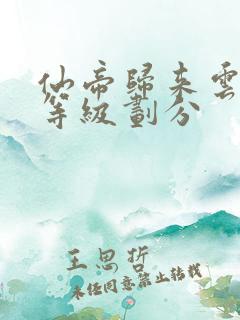 仙帝歸来雲
等級劃分
王思哲
未经同意禁止转载